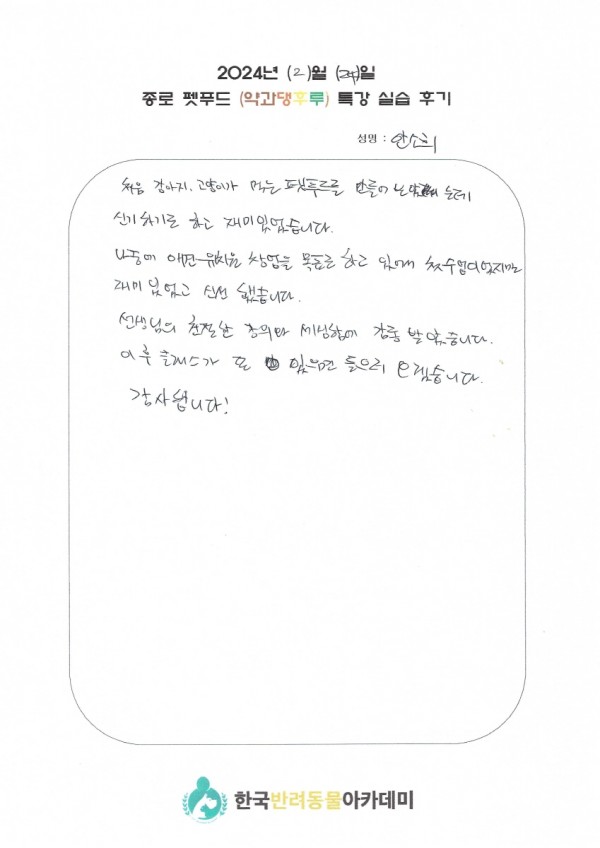 2024년 (2)월 (24)일
종로 펫푸드 (약과댕후루) 특강 실습 후기
성명 : 안소희
처음 강아지, 고양이가 먹는 펫푸드를 만들어 는데
신기하기도 하고 재미있었습니다.
나중에 애견유치원 창업을 목표로 하고 있어서 첫수업이었지만
재미있었고 신선했습니다.
선생님의 친절한 강의와 세심함에 감동 받았습니다.
이후 클래스가 또 있으면 들으러 오겠습니다.
감사합니다!
한국반려동물아카데미